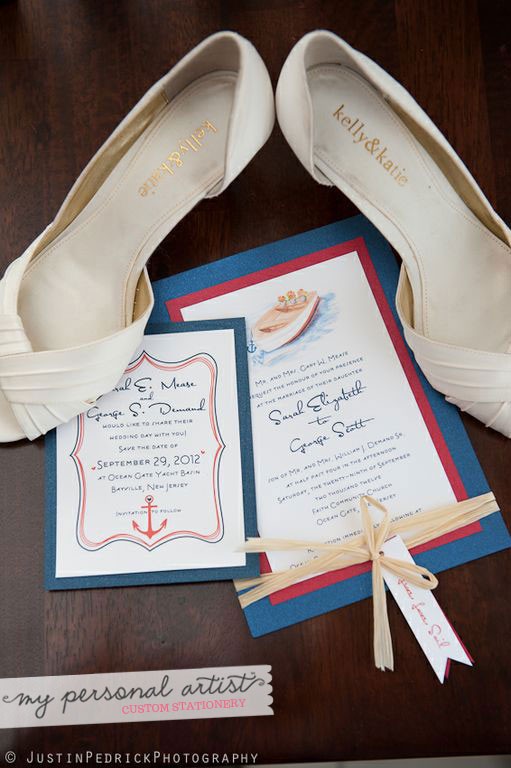 kelly&katie
kelly&katie
E. Mease
and
George S. Demand
would like to share their
wedding day with you!
Save the date of
September 29, 2012
at Ocean Gate Yacht Basin
Bayville, New Jersey
Invitation to follow
Mr. and Mrs. Gary W. Mease
request the honour of your presence
at the marriage of their daughter
Sarah Elizabeth
to
George Scott
son of Mr. and Mrs. William J. Demand Sr.
at half past four in the afternoon
Saturday, the twenty-ninth of September
two thousand twelve
Faith Community Church
Ocean Gate, New Jersey
Reception immediately following at
Sail
my personal artist
CUSTOM STATIONERY
© JustinPedrickPhotography